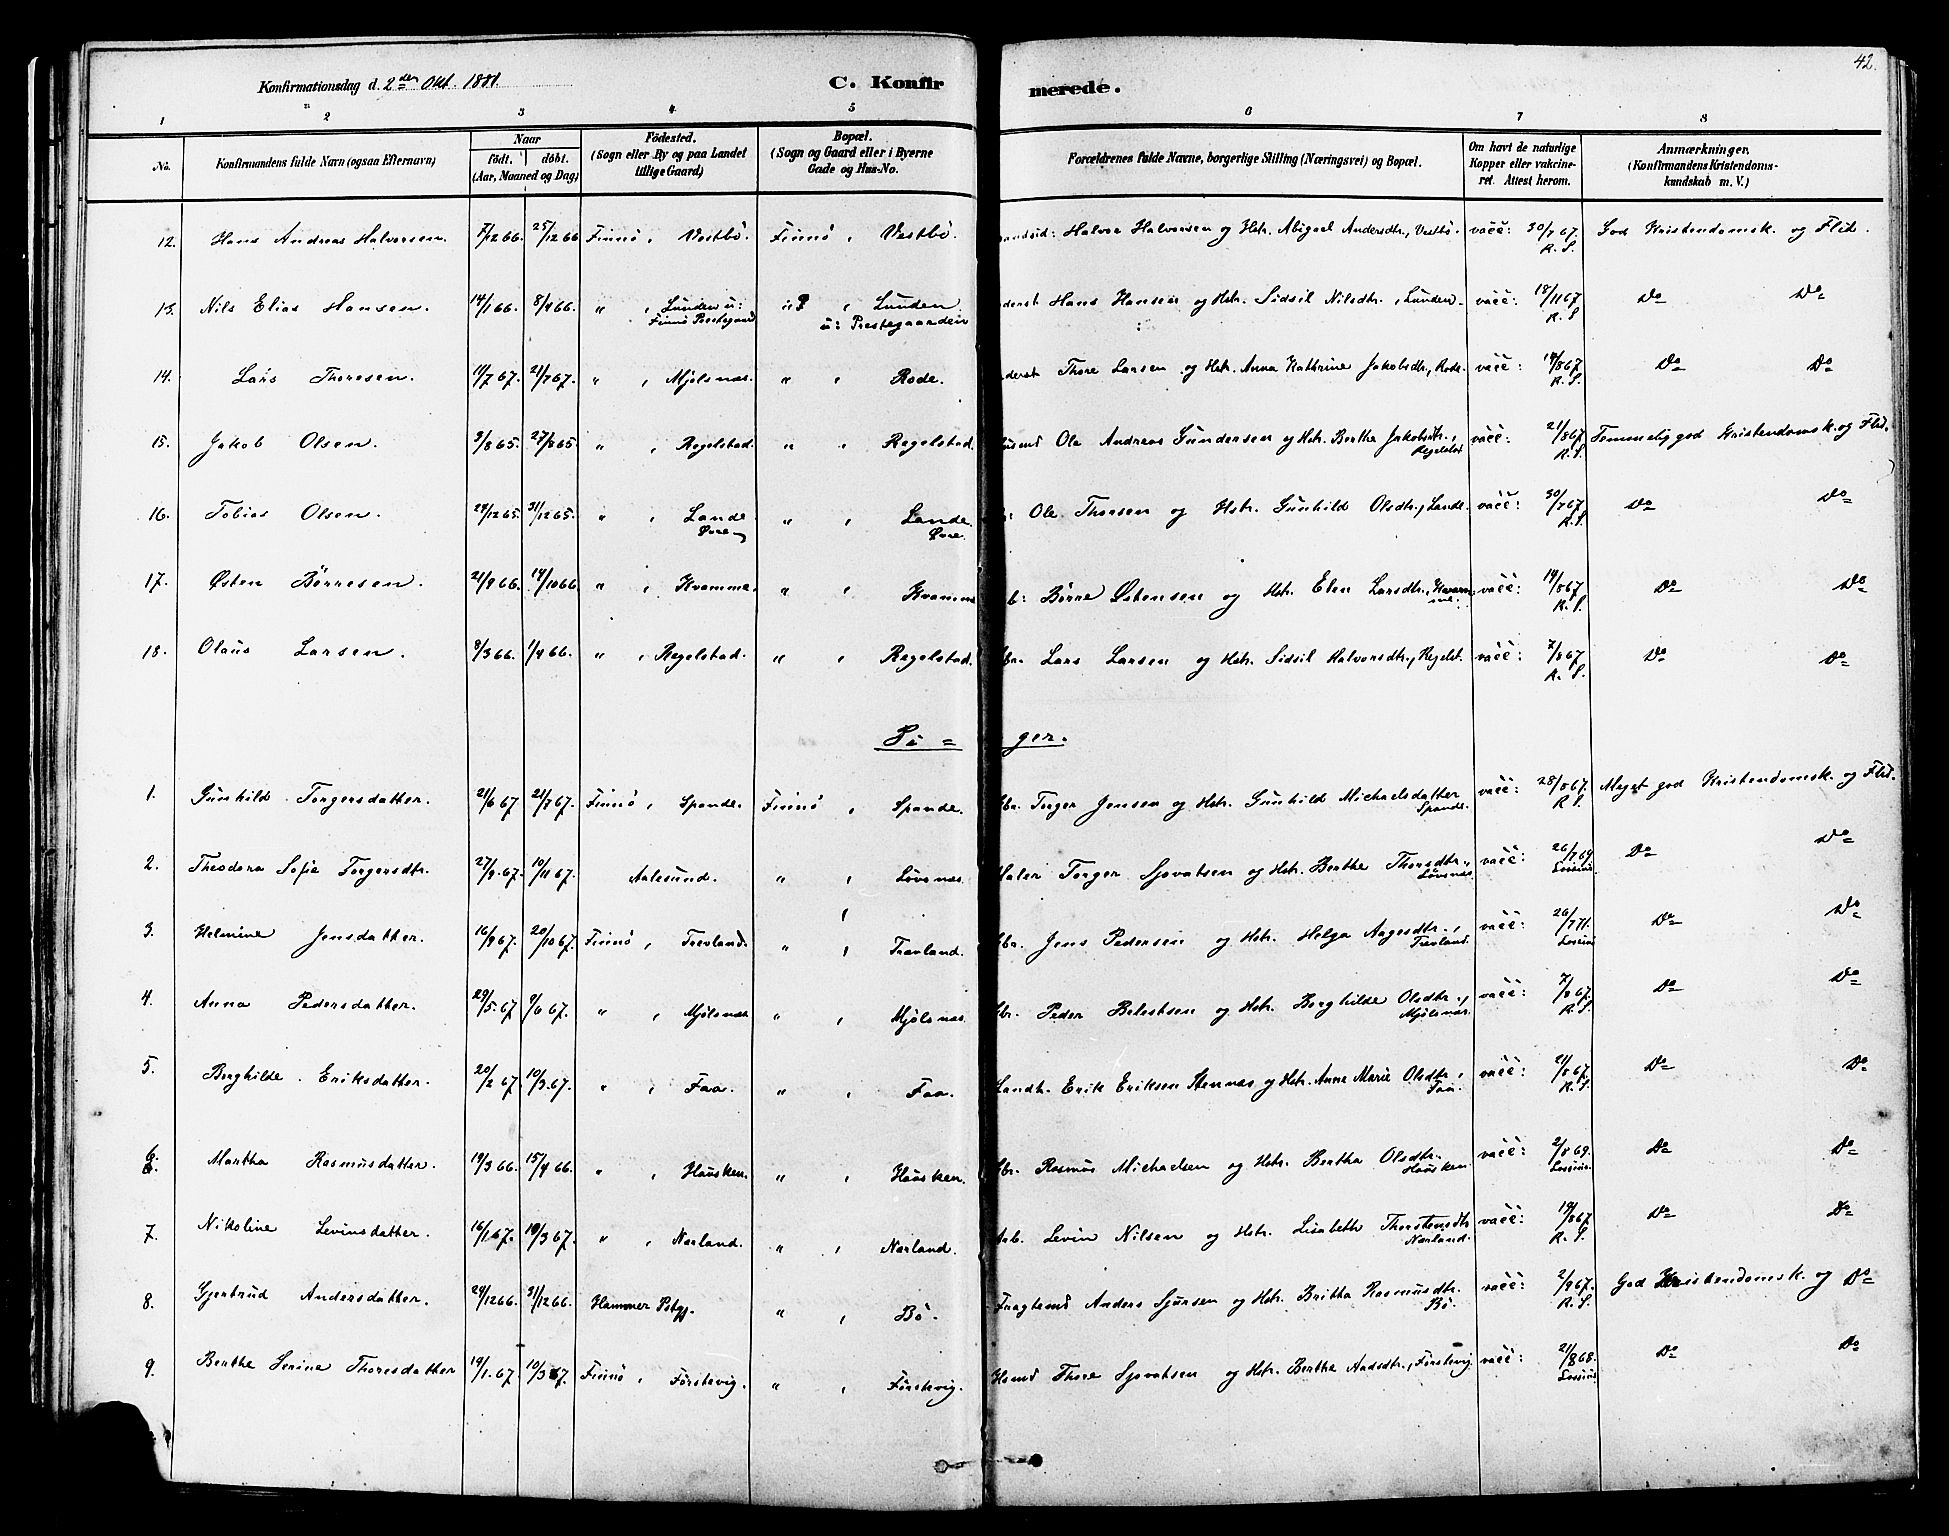 42.
Konfirmationsdag d. 2den Okt. 1881.
C. Konfirmerede.
1 2 3 4 5 6 7 8
No. Konfirmandens fulde Navn (ogsaa Efternavn) Naar født. døbt. (Aar, Maaned og Dag) Fødested. (Sogn eller By og paa Landet tillige Gaard) Bopæl. (Sogn og Gaard eller i Byerne Gade og Hus-No. Forældrenes fulde Navne, borgerlige Stilling (Næringsvei) og Bopæl. Om havt de naturlige Kopper eller vakcineret. Attest herom. Anmærkninger. (Konfirmandens Kristendomskundskab m. V.)
12. Hans Andreas Halvorsen. 7/12 66. 25/12 66 Finnö, Vestbö. Finnö, Vestbö. Halvor Halvorsen og Hstr. Abigael Andersdtr., Vestbö vacc: 30/7 67. R. S. God Kristendomsk. og Flid.
13. Nils Elias Hansen. 14/1 66. 8/4 66. " , Lunden u: Finnö Prestegaard " , Lunden u: Prestegaarden Hans Hansen og Hstr. Sidsil Nilsdtr., Lunden. vacc: 18/11 67. R. S Do Do
14. Lars Thoresen. 11/7 67. 21/7 67. " , Mjølsnæs. " , Rode. Thore Larsen og Hstr. Anna Kathrine Jakobsdtr., Rode. vacc: 14/8 67. R. S. Do Do
15. Jakob Olsen. 3/8 65. 27/8 65. " , Regelstad. " , Regelstad. Ole Andreas Gundersen og Hstr. Berthe Jakobsdtr., Regelstad vacc: 21/8 67. R. S. Temmelig god Kristendomsk. og Flid.
16. Tobias Olsen. 24/12 65. 31/12 65. " , Lande Øvre " , Lande Øvre. Ole Thorsen og Hstr. Gunhild Olsdtr., Lande. vacc: 30/7 67. R. S. Do Do
17. Østen Börresen. 21/9 66. 14/10 66. " , Kvamme. " , Kvamme Börre Østensen og Hstr. Elen Larsdtr., Kvamme. vacc: 14/8 67. R. S. Do Do
18. Olaus Larsen. 8/3 66. 1/4 66. " , Regelstad. " , Regelstad. Lars Larsen og Hstr. Sidsil Halvorsdtr., Regelst. vacc: 7/8 67. R. S. Do Do
Pi = ger.
1. Gunhild Torgersdatter. 21/6 67. 21/7 67. Finnö, Spande. Finnö, Spande. Gbr. Torger Jensen og Hstr. Gunhild Michaelsdatter Spande. vacc: 28/8 67. R. S. Meget god Kristendomsk. og Flid.
2. Theodora Sofie Torgersdtr. 27/9. 67. 10/11 67. Aalesund. " , Lövsnæs. Maler Torger Sjovatsen og Hstr. Berthe Thorsdtr., Lövsnæs. vacc: 26/7 69. Lossius Do Do
3. Helmine Jensdatter. 16/9 67. 20/10 67. Finnö, Trevland. " , Trævland. Gbr. Jens Pedersen og Hstr. Helga Aagesdtr., Trevland. vacc: 26/7 71. Lossius Do Do
4. Anna Pedersdatter. 29/5. 67. 9/6 67. " , Mjölsnæs. " , Mjölsnæs. Gbr. Peder Belestsen og Hstr. Berghilde Olsdtr., Mjölsnæs. vacc: 7/8 67. R. S. Do Do
5. Berghilde Eriksdatter. 20/2 67. 10/3. 67. " , Faa. " , Faa. Landh. Erik Eriksen Stennæs og Hstr. Anne Marie Olsdtr, Faa. vacc: 21/8 67. R. S. Do Do
6. Martha Rasmusdatter. 19/3 66. 15/4 66. " , Hausken. " , Hausken. Gbr. Rasmus Michaelsen og Hstr. Bertha Olsdtr. Hausken. vacc: 2/8 69. Lossius Do Do
7. Nikoline Levinsdatter. 16/1. 67. 10/3 67. " , Nærland. " , Nærland. Levin Nilsen og Hstr. Lisabeth Thorstensdtr Nærland. vacc: 14/8 67 R. S. Do Do
8. Gjertrud Andersdatter. 24/12 66. 31/12 66. Hammer Pstgj. " , Bö. Fragtemd Anders Sjursen og Hstr. Britha Rasmusdtr. Bö. vacc: 2/9 67. R. S. God Kristendomsk. og Do
9. Berthe Serine Thoresdatter 19/1. 67. 10/3 67. Finnö, Förstevig. " , Förstevig. Thore Sjovatsen og Hstr. Berthe Aadsdtr., Förstevig. vacc: 21/8 68. Lossius Do Do